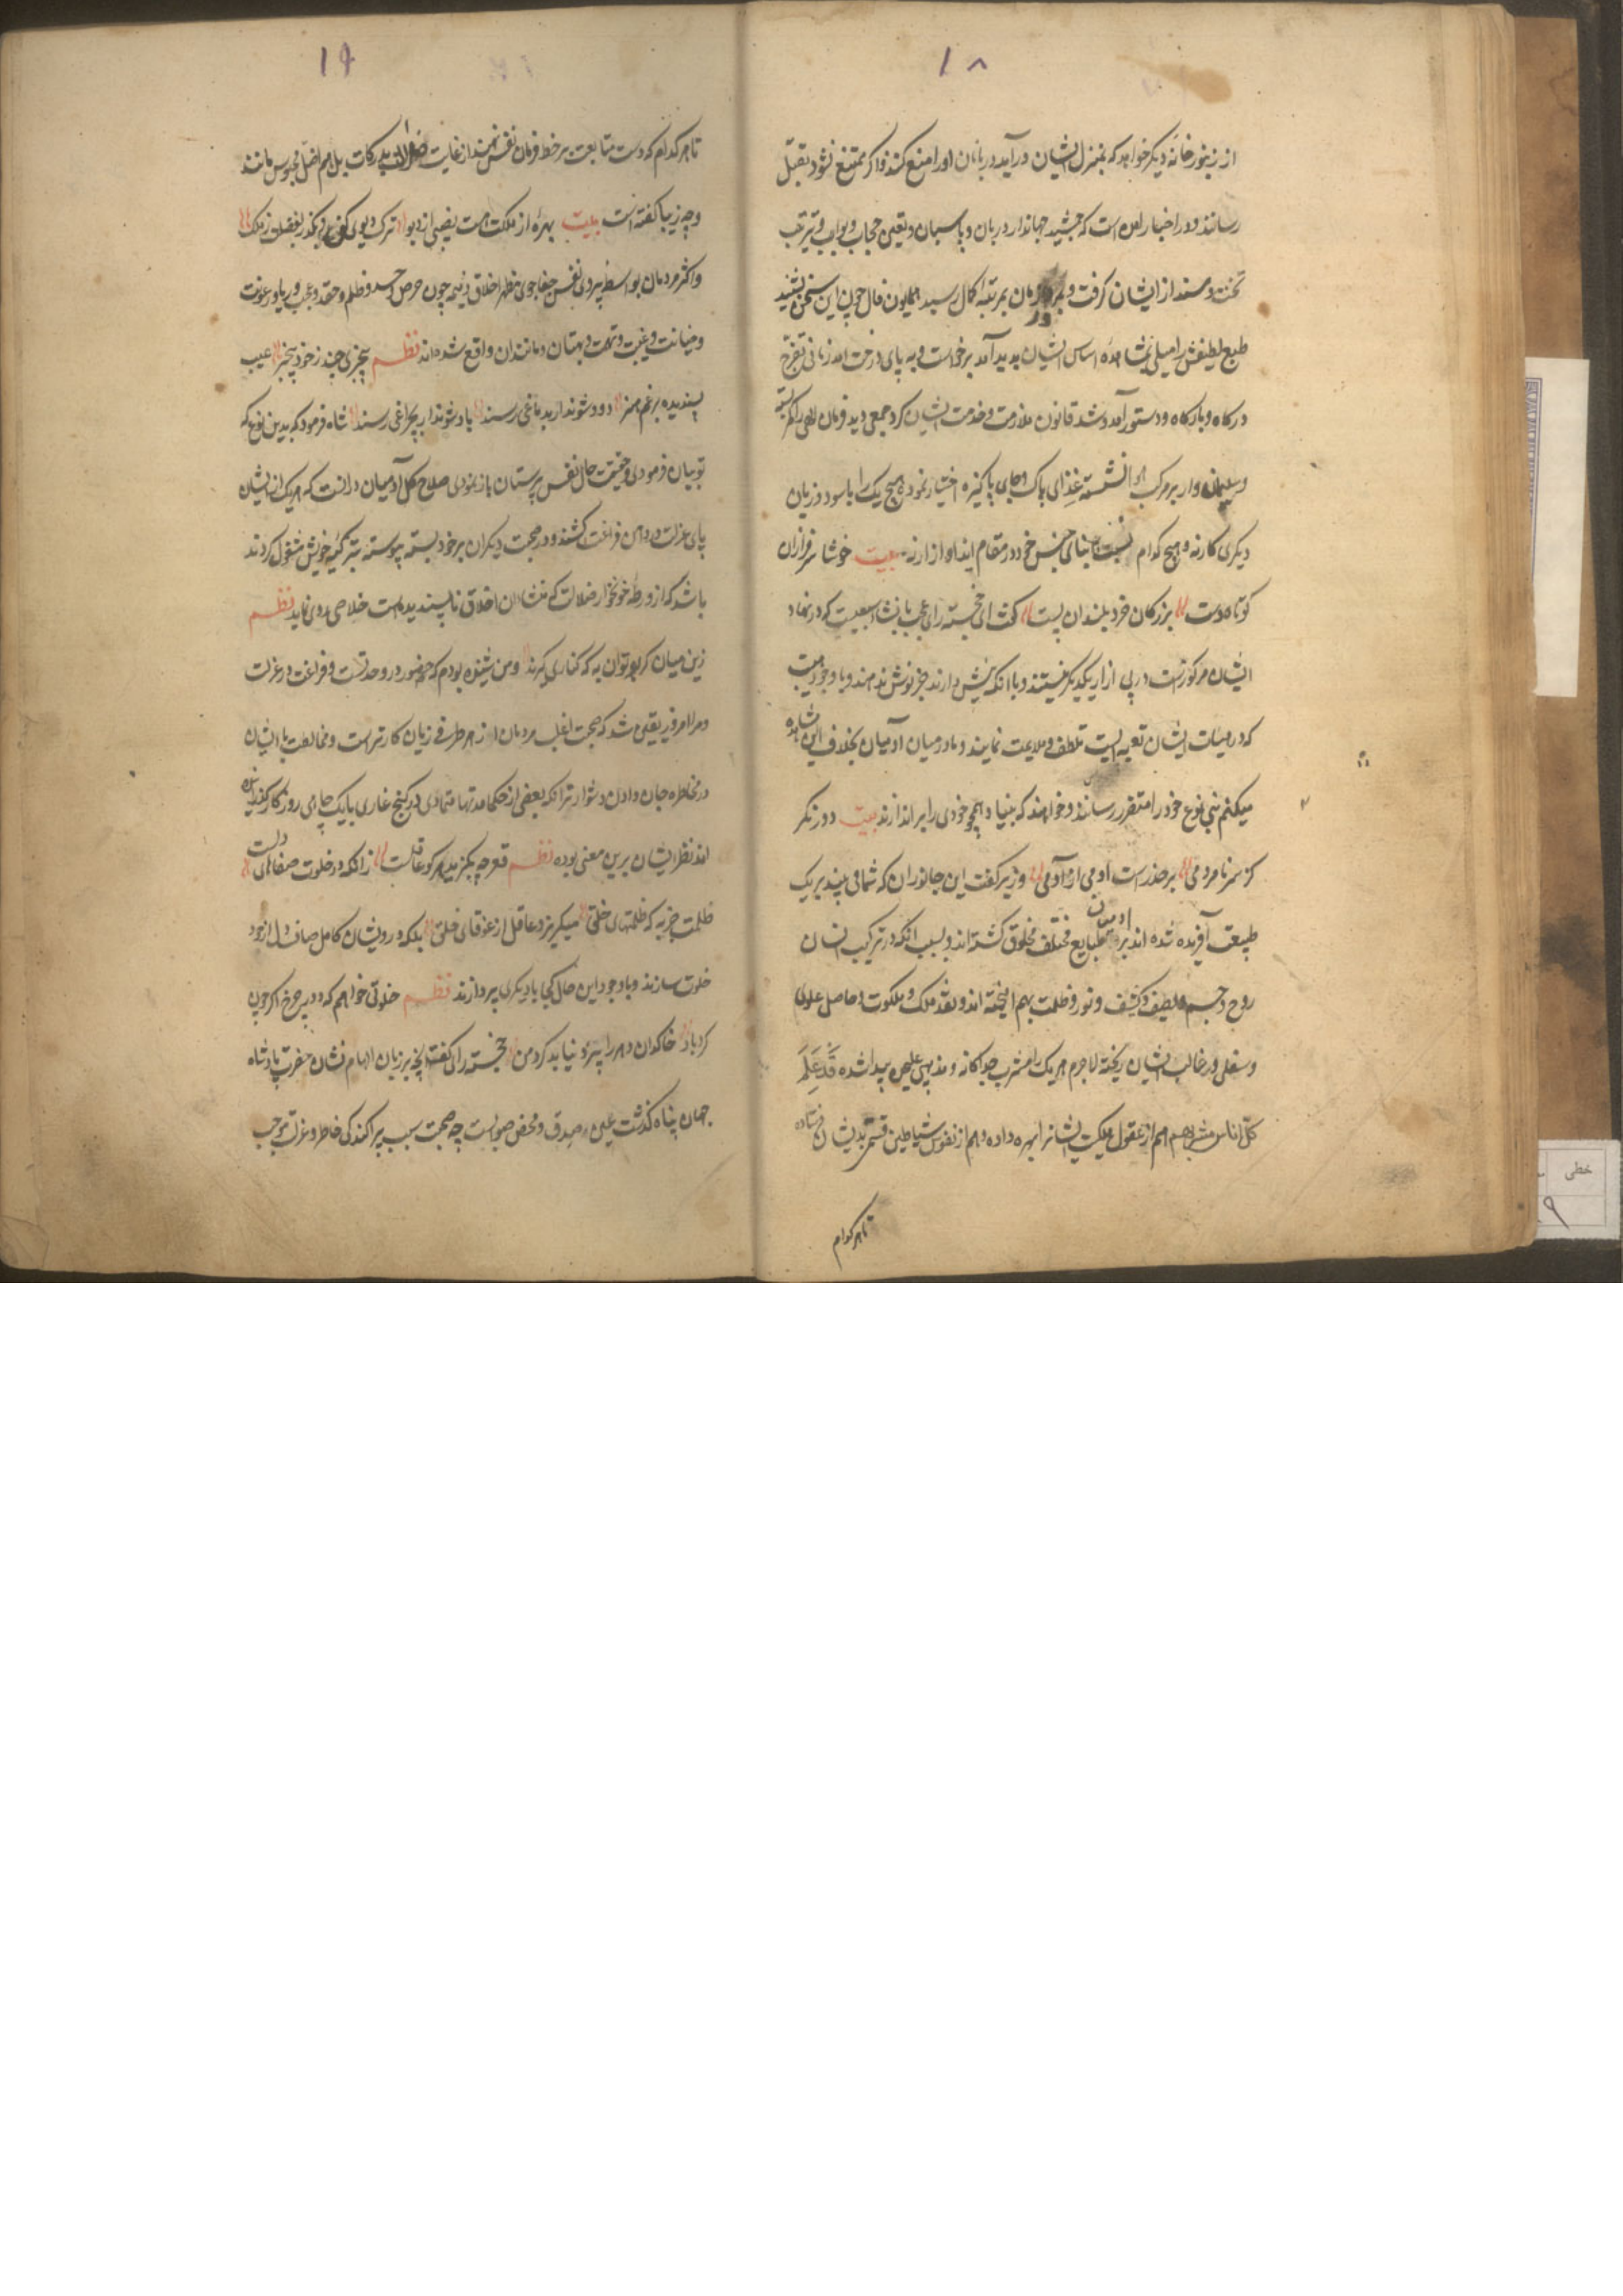 ۱۸
از زنبور خانه دیگر خواهد که بمنزل ایشان درآید دربانان او را منع کنند و اگر ممتنع نشود بقتل
رسانند و در اخبار امده است که جمشید جهاندار دربان و پاسبان و تعین حجاب و بواب و ترتیب
تخت و مسند از ایشان گرفت و بمرور زمان بمرتبه کمال رسید همایون فال چون این سخن بشنید
طبع لطیفش را میلی بمشاهده اساس ایشان پدید آمد برخواست و به پای درخت امد زمانی تفرج
درگاه و بارگاه و دستور آمد و شد قانون ملازمت و خدمت ایشان کرد جمعی دید فرمان الهی را کمر بسته
و سلیمان وار بر مرکب هوا نشسته غذای پاک و جای پاکیزه اختیار نموده هیچ یک را با سود و زیان
دیگری کار نه و هیچ کدام نسبت بابنای جنس خود در مقام ایذا و ازار نه بیت خوشا سرفرازان
کوتاه دست بزرگان خرد بلندان پست گفت ای خجسته رای عجب با نشاء سبعیت که در نهاد
ایشان مرکوزست در پی ازار یکدیگر نیستند و با انکه نیش دارند جز نوش ندهند و با وجود هیبت
که در هیئات ایشان تعبیه است تلطف و ملایمت نمایند و ما در میان آدمیان بخلاف این مشاهده
میکنم بنی نوع خود را متضرر رسانند و خواهند که بنیاد همچو خودی را براندازند بیت دد نگر
کز سر نامردمی بر حذرست ادمی از آدمی وزیر گفت این جانوران که شما می بینید بر یک
طبیعت آفریده شده اند و ادمیان بر طبایع مختلف مخلوق گشته اند و بسبب انکه در ترکیب انسان
روح و جسم و لطیف و کثیف و نور و ظلمت بهم امیخته اند و نقد ملک و ملکوت و حاصل علوی
و سفلی در قالب ایشان ریخته لاجرم هر یک را مشرب جداگانه و مذهبی علیحده پیدا شده قَدْ عَلِمَ
کل اناس مشربهم هم از عقول ملکیت ایشانرا بهره داده و هم از نفوس شیاطین قسمتی بدیشان فرستاده
تا هر کدام
۱۹
تا هر کدام که دست متابعت بر خط فرمان نفس نهند از غایت ضلالت بدرکات بل هم اضل محبوس مانند
و چه زیبا گفته است بیت بهره از ملکت هست و نصیبی از دیو ترک دیوی کن و بگذر بفضلت ز ملک
و اکثر مردمان بواسطه پیروی نفس جفاجوی مظهر اخلاق ذمیمه چون حرص و حسد و ظلم و حقد و عجب و ریا و رعونت
و خیانت و غیبت و تهمت و بهتان و مانند ان واقع شده اند نظم بیخبری چند ز خود بیخبر عیب
پسندیده برغم هنر دود شوند ار بدماغی رسند باد شوند ار بچراغی رسند شاه فرمود که بدین نوع که
تو بیان فرمودی و حقیقت حال نفس پرستان باز نمودی صلاح کل آدمیان درانست که هر یک از ایشان
پای عزلت در دامن فراغت کشند و در صحبت دیگران بر خود بسته پیوسته بتزکیه خویش مشغول گردند
باشد که از ورطه خونخوار ضلالت که منشاء ان اخلاق ناپسندیده است خلاصی روی نماید نظم
زین میان گر بتوان به که کناری گیرند و من شنیده بودم که حضور در وحدتست و فراغت در عزلت
و مرا امروز یقین شد که صحبت اغلب مردمان از زهر کار تر است و مخالطت با ایشان
در مخاطره جان دادن دشوارتر انکه بعضی از حکما مدتها متمادی در کنج غاری یا تک چاهی روزگار گذرانیده
اند نظر ایشان برین معنی بوده نظم قعر چه بگزید هر کو عاقلست زانکه در خلوت صفاهای دلست
ظلمت چه به که ظلمتهای خلق میگریزد عاقل از غوغای خلق بلکه درویشان کامل صاف دل از خود
خلوت سازند و با وجود این حال کی با دیگری پردازند نظم خلوتی خواهم که دور چرخ اگر چون
گردباد خاکدان دهر را پیزد نیابد گرد من خجسته رای گفت انچه بر زبان الهام نشان حضرت پادشاه
جهان پناه گذشت عین صدق و محض صوابست چه صحبت سبب پراکندگی خاطر و عزلت موجب
خطی